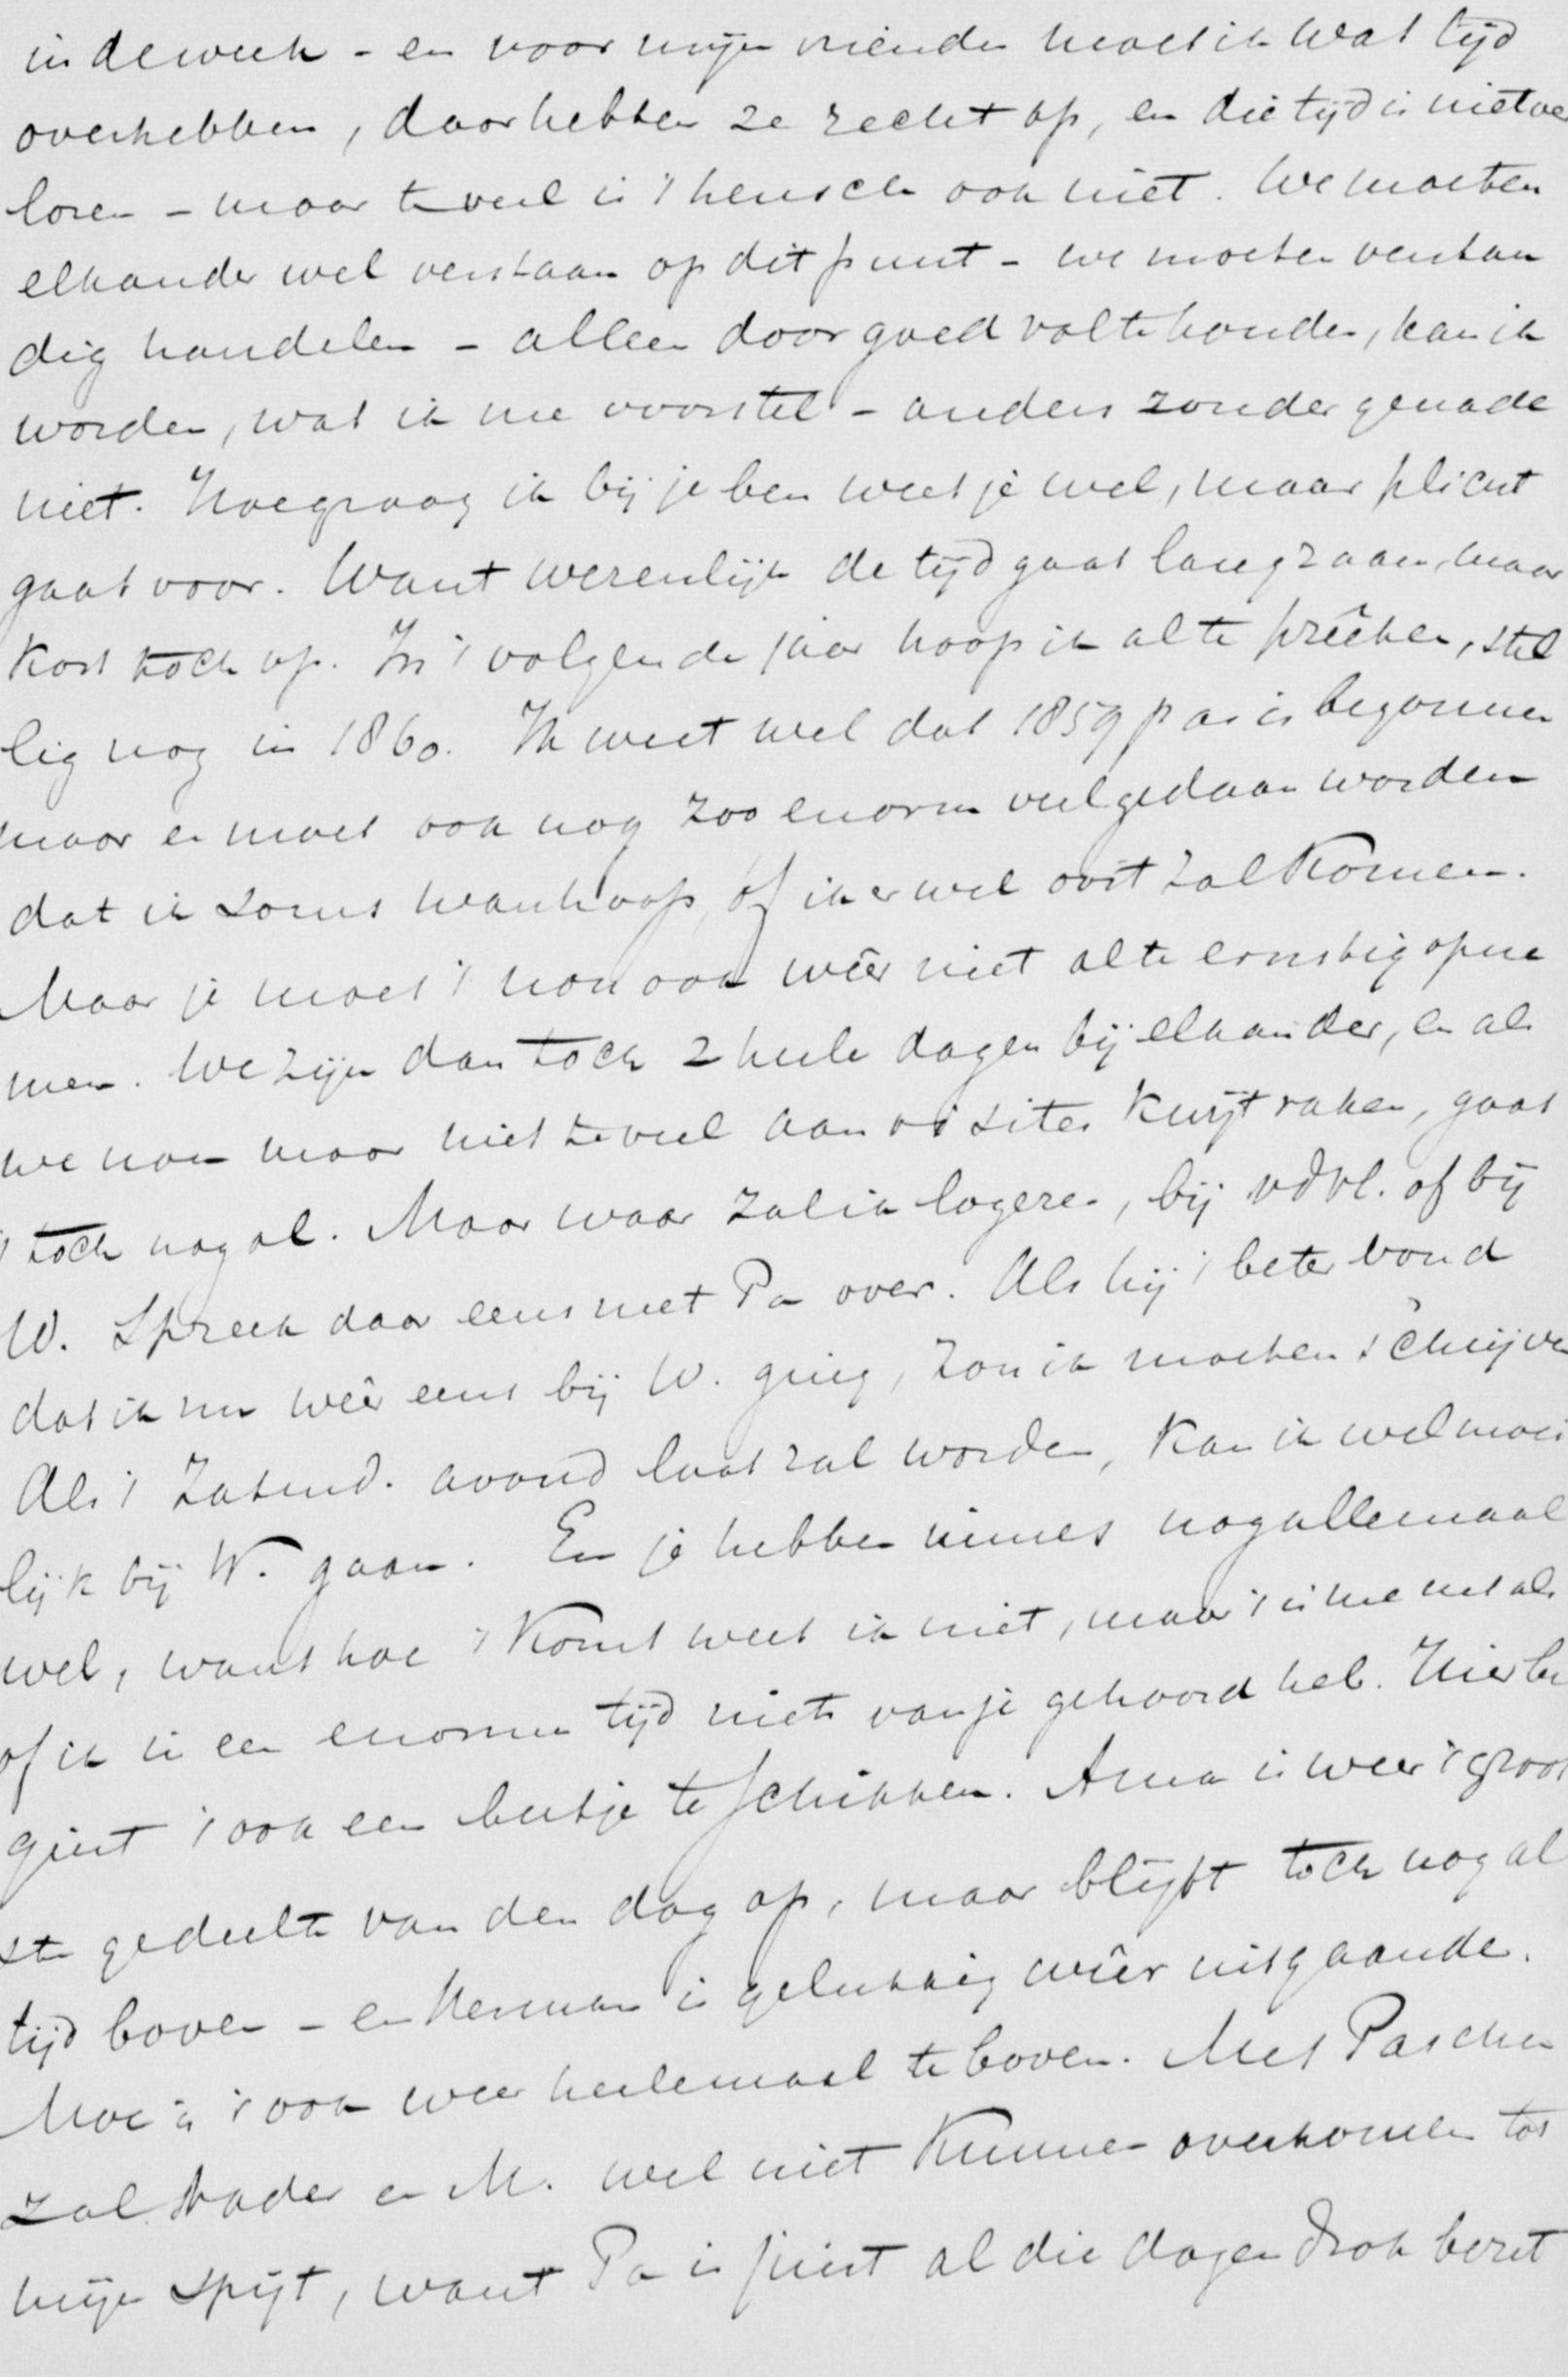 in de week - en voor mijn vrienden moet ik wat tijd
overhebben, daar hebben ze recht op, en die tijd is niet ver
loren - maar te veel is 't heusch ook niet. We moeten
elkander wel verstaan op dit punt - we moeten verstan
dig handelen - alleen door goed vol te houden, kan ik
worden, wat ik me voorstel - anders zonder genade
niet. Hoe graag ik bij je ben weet je wel, maar plicht
gaat voor. Want wezenlijk de tijd gaat langzaam, maar
kort toch op. In 't volgende jaar hoop ik al te prêeken, stel
lig nog in 1860. Ik weet wel dat 1859 pas is begonnen
maar er moet ook nog zoo enorm veel gedaan worden
dat ik soms wanhoop, of ik er wel ooit zal komen.
Maar je moet 't nou ook wêer niet al te ernstig opne
men. We zijn dan toch 2 heele dagen bij elkander, en als
we nou maar niet te veel aan visites kwijt raken, gaat
't toch nog al. Maar waar zal ik logeren, bij vdVl. of bij
W. Spreek daar eens met Pa over. Als hij 't beter vond
dat ik nu wêer eens bij W. ging, zou ik moeten schrijven
Als 't Zaturd. avond laat zal worden, kan ik wel moei
lijk bij W. gaan. En je hebben immes nog allemaal
wel, want hoe 't komt weet ik niet, maar 't is me net als
of ik in een enorme tijd niets van je gehoord heb. Hier be
gint 't ook een beetje te schikken. Anna is weer 't groot
ste gedeelte van den dag op, maar blijft toch nog al
tijd boven - en Herman is gelukkig wêer uitgaande.
Moe is 't ook weer heelemaal te boven. Met Paschen
zal Vader en M. wel niet kunnen overkomen tot
mijn spijt, want Pa is juist al die dagen drok bezet